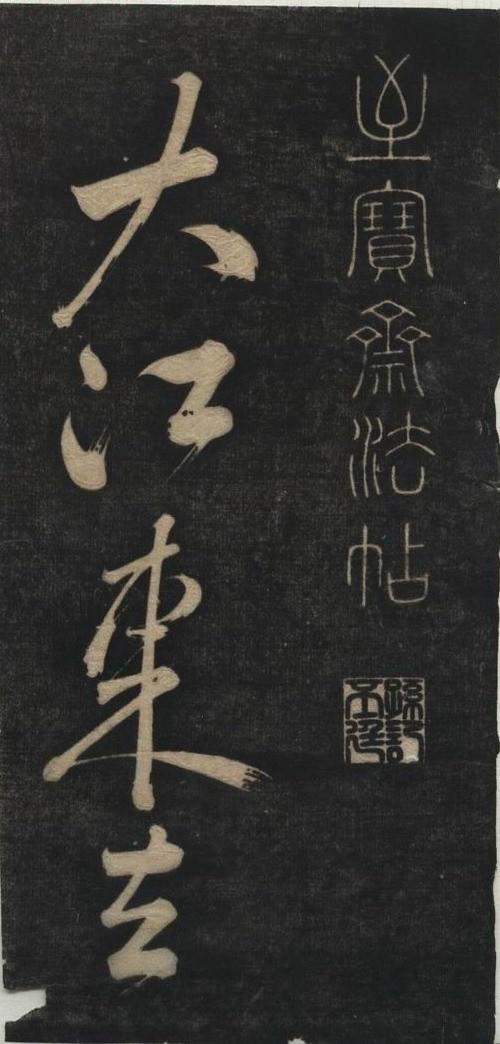 至寶齋法帖
大江東去